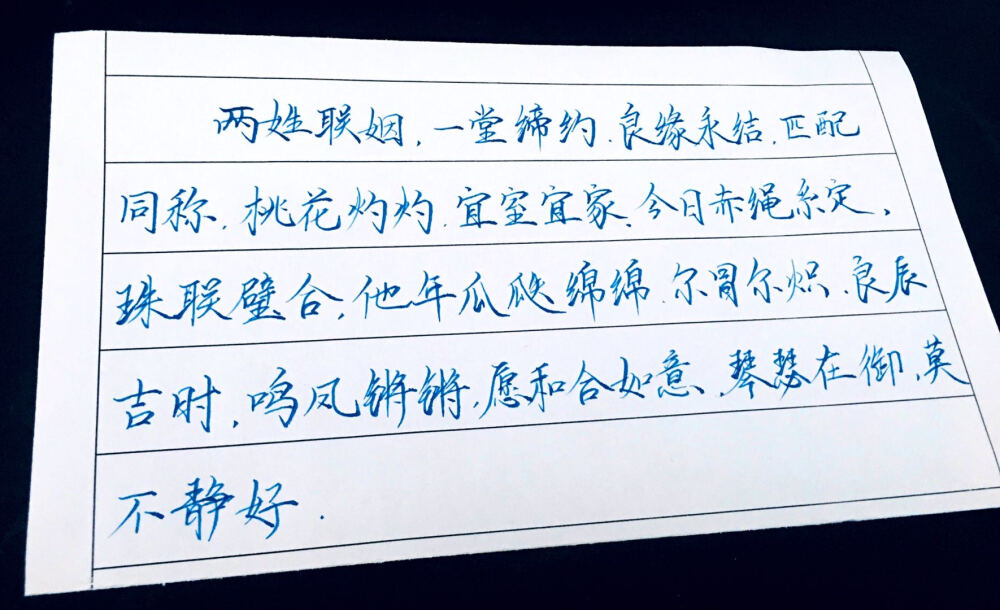 两姓联姻,一堂缔约.良缘永结.匹配
同称.桃花灼灼.宜室宜家.今日赤绳系定,
珠联璧合.他年瓜瓞绵绵.尔冒尔炽.良辰
吉时,鸣凤锵锵.愿和合如意、琴瑟在御,莫
不静好.